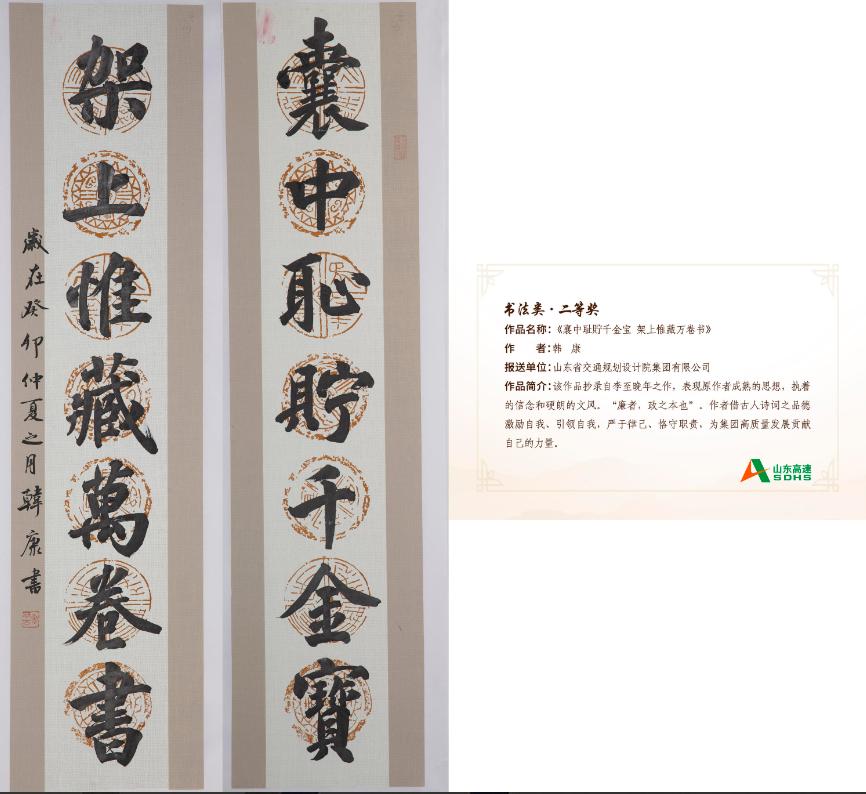 囊中恥貯千金寶
架上惟藏萬卷書
歲在癸卯仲夏之月韓康書
书法类·二等奖
作品名称：《襄中耻貯千金宝 架上惟藏万卷书》
作　　者：韩　康
报送单位：山东省交通规划设计院集团有限公司
作品简介：该作品抄录自李至晚年之作，表现原作者成熟的思想，执着
的信念和硬朗的文风。“廉者，政之本也”。作者借古人诗词之品德
激励自我、引领自我，严于律己、恪守职责，为集团高质量发展贡献
自己的力量。
山东高速
SDHS